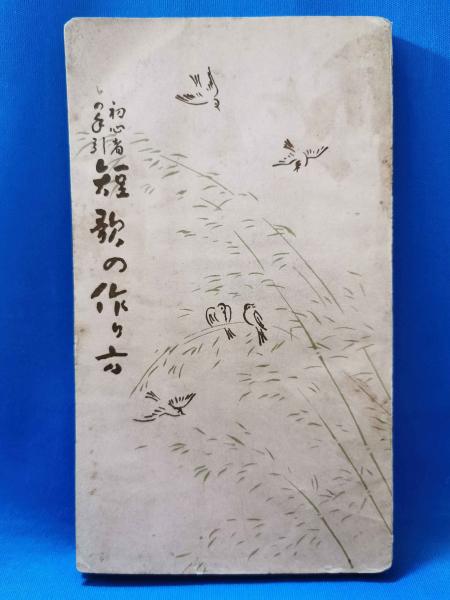 初心者
の手引
短歌の作り方